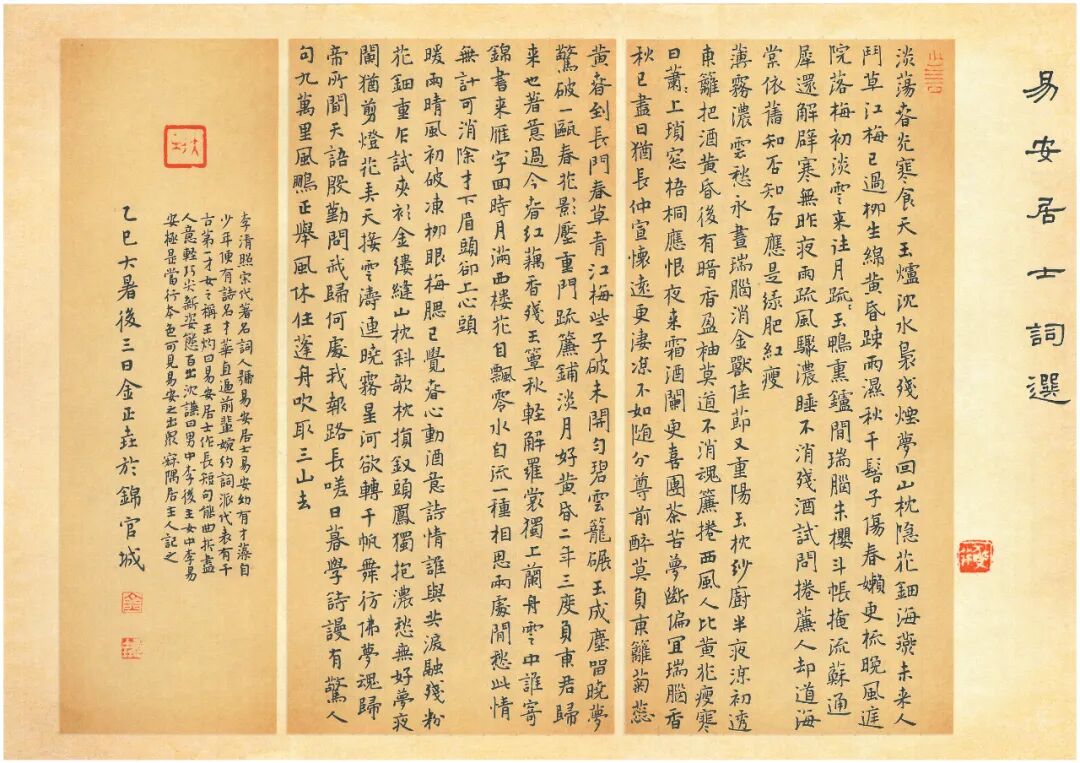 易安居士詞選
淡蕩春光寒食天玉爐沈水裊殘煙夢回山枕隱花鈿海燕未来人
鬥草江梅已過柳生綿黄昏踈雨濕秋千髻子傷春嬾更梳晚風庭
院落梅初淡雲来往月疏〻玉鴨熏鑪閒瑞腦朱櫻斗帳掩流蘇通
犀還解辟寒無昨夜雨疏風驟濃睡不消殘酒試問捲簾人却道海
棠依舊知否知否應是緑肥紅瘦
薄霧濃雲愁永晝瑞腦消金獸佳節又重陽玉枕紗廚半夜涼初透
東籬把酒黄昏後有暗香盈袖莫道不消魂簾捲西風人比黄花瘦寒
日蕭〻上瑣窓梧桐應恨夜来霜酒闌更喜團茶苦夢斷偏宜瑞腦香
秋已盡日猶長仲宣懷遠更凄涼不如随分尊前醉莫負東籬菊蕊
黄春到長門春草青江梅些子破未開勻碧雲籠碾玉成塵留曉夢
驚破一甌春花影壓重門疏簾鋪淡月好黄昏二年三度負東君歸
来也著意過今春紅藕香殘玉簟秋輕解羅裳獨上蘭舟雲中誰寄
錦書来雁字回時月滿西樓花自飄零水自流一種相思兩處閒愁此情
無計可消除才下眉頭卻上心頭
暖雨晴風初破凍柳眼梅腮已覺春心動酒意詩情誰與共淚融殘粉
花鈿重乍試夾衫金縷縫山枕斜欹枕損釵頭鳳獨抱濃愁無好夢夜
闌猶剪燈花弄天接雲濤連曉霧星河欲轉千帆舞彷佛夢魂歸
帝所聞天語殷勤問我歸何處我報路長嗟日暮學詩謾有驚人
句九萬里風鵬正舉風休住蓬舟吹取三山去
李清照宋代著名詞人號易安居士易安幼有才藻自
少年便有詩名才華直逼前輩婉約詞派代表有千
古第一才女之稱王灼曰易安居士作長短句能曲折盡
人意輕巧尖新姿態百出沈謙曰男中李後主女中李易
安極是當行本色可見易安之出衆寐隅居主人記之
乙巳大暑後三日金正垚於錦官城